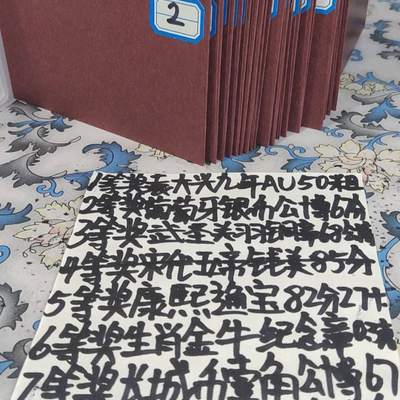 2
1等奖袁大头九年AU50粗
2等奖葡萄牙银币公博6分
3等奖武圣关羽
4等奖宋代五帝钱美85分
5等奖康熙通宝82分27
6等奖生肖金牛纪念章0.3克
7等奖长城币壹角公博67